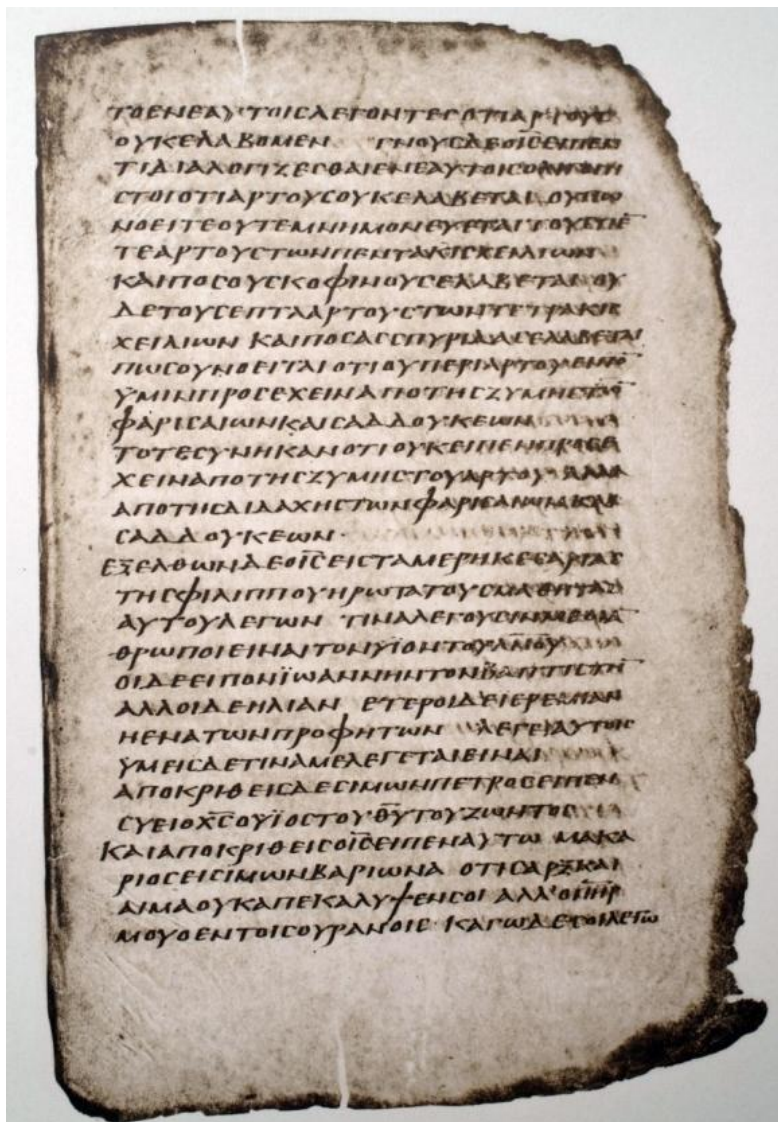 ΤΟΕΝΕΑΥΤΟΙCΛΕΓΟΝΤΕCΟΤΙΑΡΤΟΥC
ΟΥΚΕΛΑΒΟΜΕΝ ΓΝΟΥCΔΕΟΙ̅C̅ΕΙΠΕΝ
ΤΙΔΙΑΛΟΓΙΖΕCΘΑΙΕΝΕΑΥΤΟΙCΟΛΙΓΟΠΙ
CΤΟΙΟΤΙΑΡΤΟΥCΟΥΚΕΛΑΒΕΤΑΙ ΟΥΠΩ
ΝΟΕΙΤΕΟΥΤΕΜΝΗΜΟΝΕΥΕΤΑΙΤΟΥCΠΕ̅
ΤΕΑΡΤΟΥCΤΩΝΠΕΝΤΑΚΙCΧΕΙΛΙΩΝ
ΚΑΙΠΟCΟΥCΚΟΦΙΝΟΥCΕΛΑΒΕΤΑΙ ΟΥ
ΔΕΤΟΥCΕΠΤΑΑΡΤΟΥCΤΩΝΤΕΤΡΑΚΙC
ΧΕΙΛΙΩΝ ΚΑΙΠΟCΑCCΠΥΡΙΔΑCΕΛΑΒΕΤΑΙ
ΠΩCΟΥΝΟΕΙΤΑΙΟΤΙΟΥΠΕΡΙΑΡΤΟΥΕΙΠΟ̅
ΫΜΙΝΠΡΟCΕΧΕΙΝΑΠΟΤΗCΖΥΜΗCΤΩ̅
ΦΑΡΙCΑΙΩΝΚΑΙCΑΔΔΟΥΚΕΩΝ
ΤΟΤΕCΥΝΗΚΑΝΟΤΙΟΥΚΕΙΠΕΝΠΡΟCΕ
ΧΕΙΝΑΠΟΤΗCΖΥΜΗCΤΟΥΑΡΤΟΥ ΑΛΛΑ
ΑΠΟΤΗCΔΙΔΑΧΗCΤΩΝΦΑΡΙCΑΙΩΝΚΑΙ
CΑΔΔΟΥΚΕΩΝ·
ΕΞΕΛΘΩΝΔΕΟΙ̅C̅ΕΙCΤΑΜΕΡΗΚΕCΑΡΙΑC
ΤΗCΦΙΛΙΠΠΟΥΗΡΩΤΑΤΟΥCΜΑΘΗΤΑC
ΑΥΤΟΥΛΕΓΩΝ ΤΙΝΑΛΕΓΟΥCΙΝΜΕΟΙΑ̅
ΘΡΩΠΟΙΕΙΝΑΙΤΟΝΥΪΟΝΤΟΥΑ̅Ν̅Ο̅Υ̅
ΟΙΔΕΕΙΠΟΝΪΩΑΝΝΗΝΤΟΝΒΑΠΤΙCΤΗ̅
ΑΛΛΟΙΔΕΗΛΙΑΝ ΕΤΕΡΟΙΔΕΙΕΡΕΜΙΑΝ
ΗΕΝΑΤΩΝΠΡΟΦΗΤΩΝ ΛΕΓΕΙΑΥΤΟΙC
ΥΜΕΙCΔΕΤΙΝΑΜΕΛΕΓΕΤΑΙΕΙΝΑΙ
ΑΠΟΚΡΙΘΕΙCΔΕCΙΜΩΝΠΕΤΡΟCΕΙΠΕΝ
CΥΕΙΟΧ̅C̅ΟΥΪΟCΤΟΥΘ̅Υ̅ΤΟΥΖΩΝΤΟC
ΚΑΙΑΠΟΚΡΙΘΕΙCΟΙ̅C̅ΕΙΠΕΝΑΥΤΩ ΜΑΚΑ
ΡΙΟCΕΙCΙΜΩΝΒΑΡΙΩΝΑ ΟΤΙCΑΡΞΚΑΙ
ΑΙΜΑΟΥΚΑΠΕΚΑΛΥΨΕΝCΟΙ ΑΛΛʼΟΠ̅Η̅Ρ̅
ΜΟΥΟΕΝΤΟΙCΟΥΡΑΝΟΙC· ΚΑΓΩΔΕCΟΙΛΕΓΩ